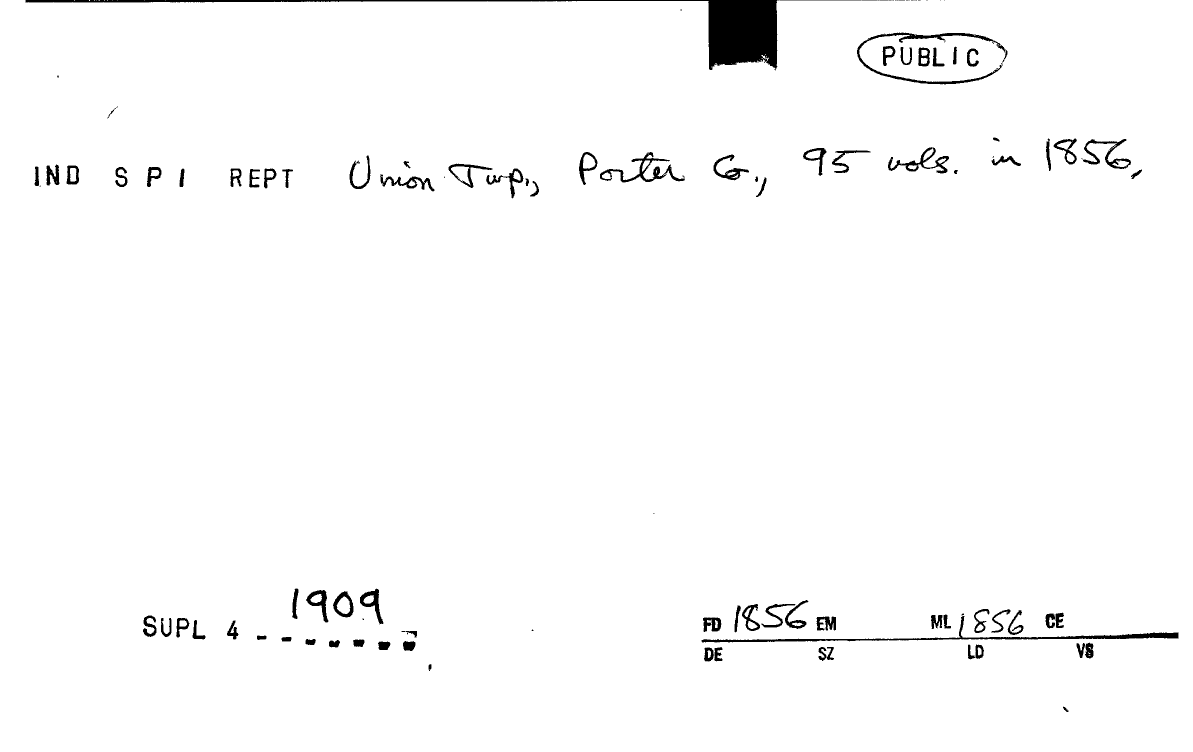 PUBLIC
IND S P I REPT Union Twp., Porter Co., 95 vols. in 1856,
1909
SUPL 4 - - - - - - -
FD 1856 EM ML 1856 CE
DE SZ LD VS